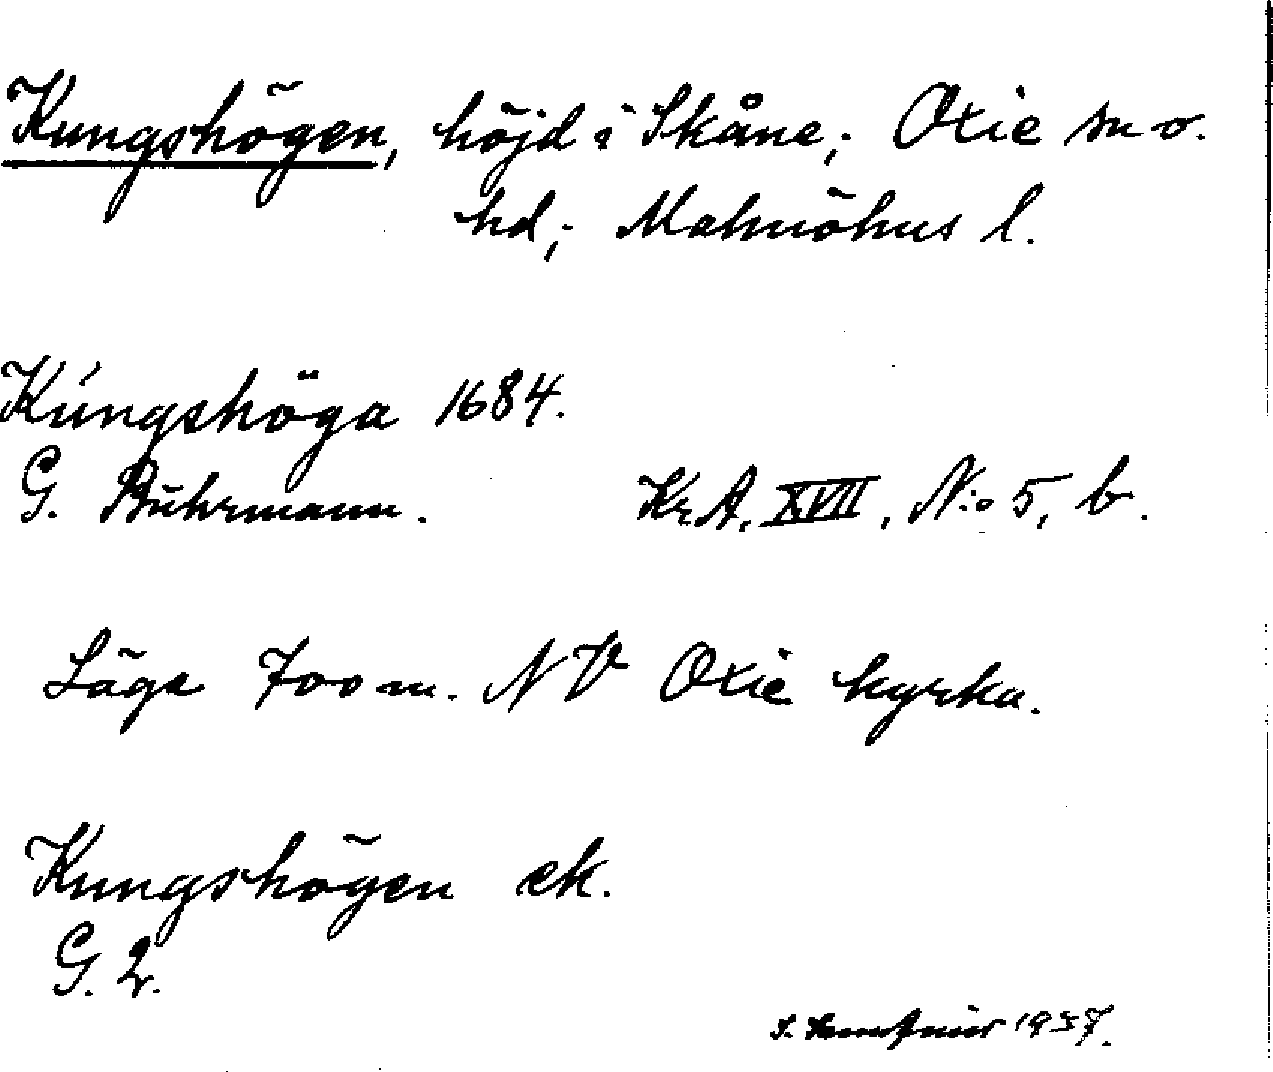 Kungshögen, höjd i Skåne; Oxie sn o.
hd; Malmöhus l.
Kúngshöga 1684.
G. Buhrmann. Kr.A. XVII, N:o 5, b.
Läge 700 m. NV Oxie kyrka.
Kungshögen ek.
G. 2.
1937.